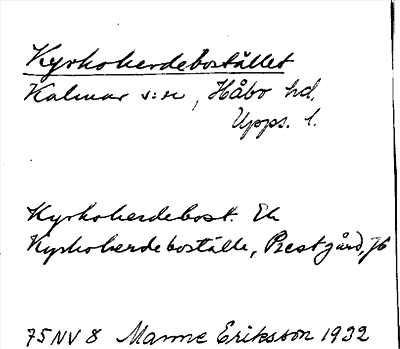 Kyrkoherdebostället
Kalmar s:n, Håbo hd,
Upps. l.
Kyrkoherdebost. Ek
Kyrkoherdeboställe, Prestgård, Jb
75 NV 8 Manne Eriksson 1932